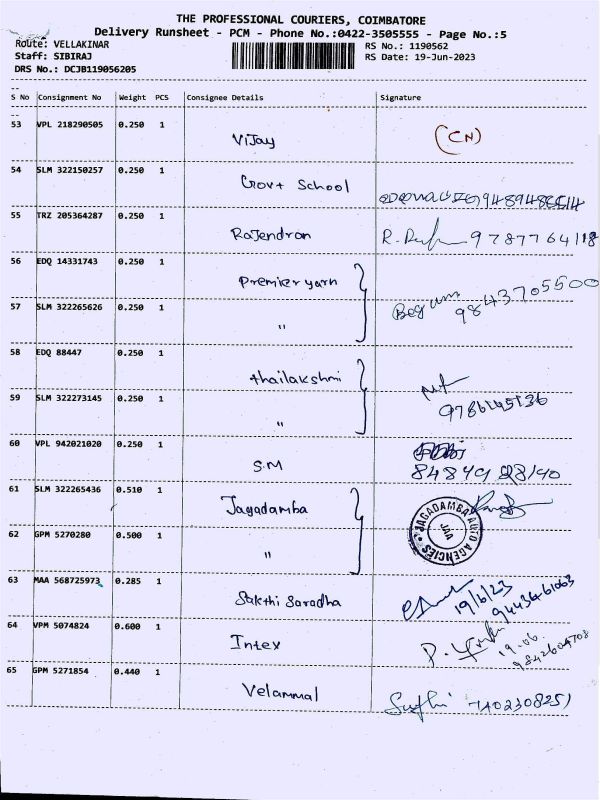 THE PROFESSIONAL COURIERS, COIMBATORE
Delivery Runsheet - PCM - Phone No.:0422-3505555 - Page No.:5
Route: VELLAKINAR RS No.: 1190562
Staff: SIBIRAJ RS Date: 19-Jun-2023
DRS No.: DCJB119056205
S No Consignment No Weight PCS Consignee Details Signature
53 VPL 218290505 0.250 1
Vijay (CN)
54 SLM 322150257 0.250 1
Govt School
55 TRZ 205364287 0.250 1
Rajendran R. 9787764118
56 EDQ 14331743 0.250 1
Premier yarn
Begum 9843705500
57 SLM 322265626 0.250 1
"
58 EDQ 88447 0.250 1
thailakshmi
59 SLM 322273145 0.250 1
9786145136
"
60 VPL 942021020 0.250 1
S.M
61 SLM 322265436 0.510 1
Jagadamba
JAGADAMBA AUTO AGENCIES
JAA
62 GPM 5270280 0.500 1
"
63 MAA 568725973 0.285 1
Sakthi Saradha 19/6/23
64 VPM 5074824 0.600 1
Intex P. 19.06.
65 GPM 5271854 0.440 1
Velammal 7402308251